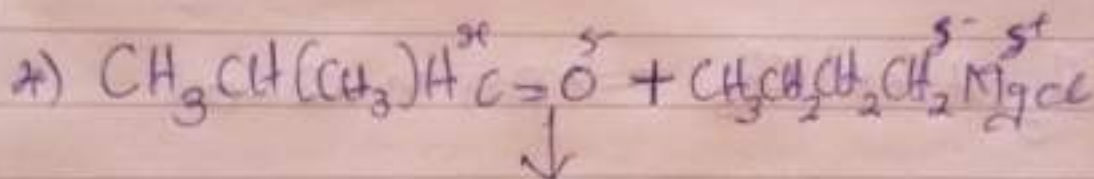 4) CH₃CH(CH₃)HC=O + CH₃CH₂CH₂CH₂MgCl
δ+ δ- δ- δ+
↓